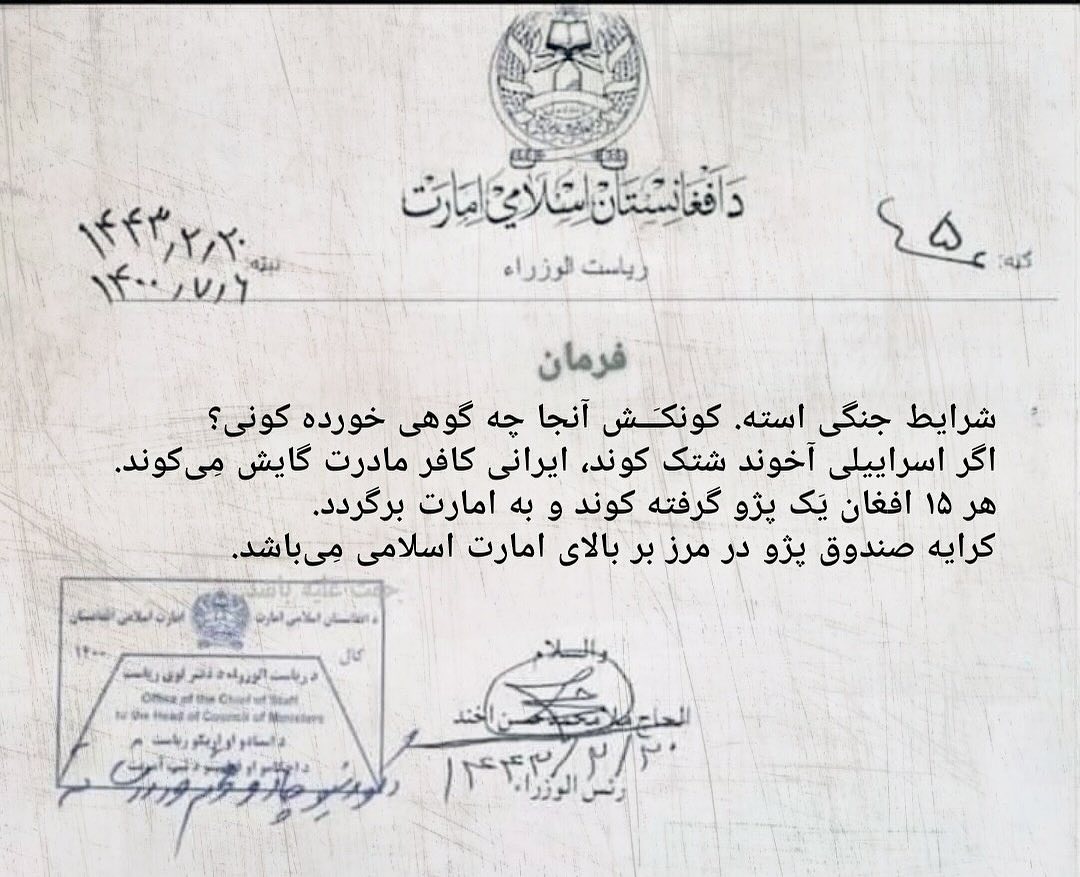 د افغانستان اسلامي امارت
ریاست الوزراء
گڼه: ۵
نېټه: ۱۴۴۳/۲/۲۰
۱۴۰۰/۷/۶
فرمان
شرایط جنگی استه. کونکَــش آنجا چه گوهی خورده کونی؟
اگر اسراییلی آخوند شتک کوند، ایرانی کافر مادرت گایش مِی‌کوند.
هر ۱۵ افغان یَک پژو گرفته کوند و به امارت برگردد.
کرایه صندوق پژو در مرز بر بالای امارت اسلامی مِی‌باشد.
والسلام
الحاج ملا محمد حسن اخند
۱۴۴۳/۲/۲۰
رئس الوزراء
د افغانستان اسلامی امارت
امارت اسلامی افغانستان
کال
۱۴۰۰
د ریاست الوزراء د دفتر لوی ریاست
Office of the Chief of Staff
to the Head of Council of Ministers
د اسنادو او اړیکو ریاست